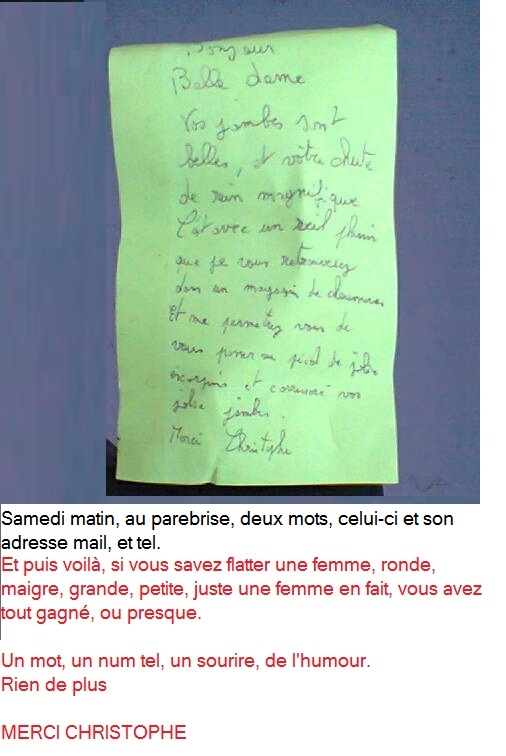 Bonjour
Belle dame
Vos jambes sont
belles, et vôtre chute
de rein magnifique
C'est avec un réel plaisir
que je vous retrouverez
dans un magasin de chaussures
Et me permettrez vous de
vous poser au pied de jolie
escarpins et caressaié vos
jolie jambes.
Merci Christophe
Samedi matin, au parebrise, deux mots, celui-ci et son
adresse mail, et tel.
Et puis voilà, si vous savez flatter une femme, ronde,
maigre, grande, petite, juste une femme en fait, vous avez
tout gagné, ou presque.
Un mot, un num tel, un sourire, de l'humour.
Rien de plus
MERCI CHRISTOPHE